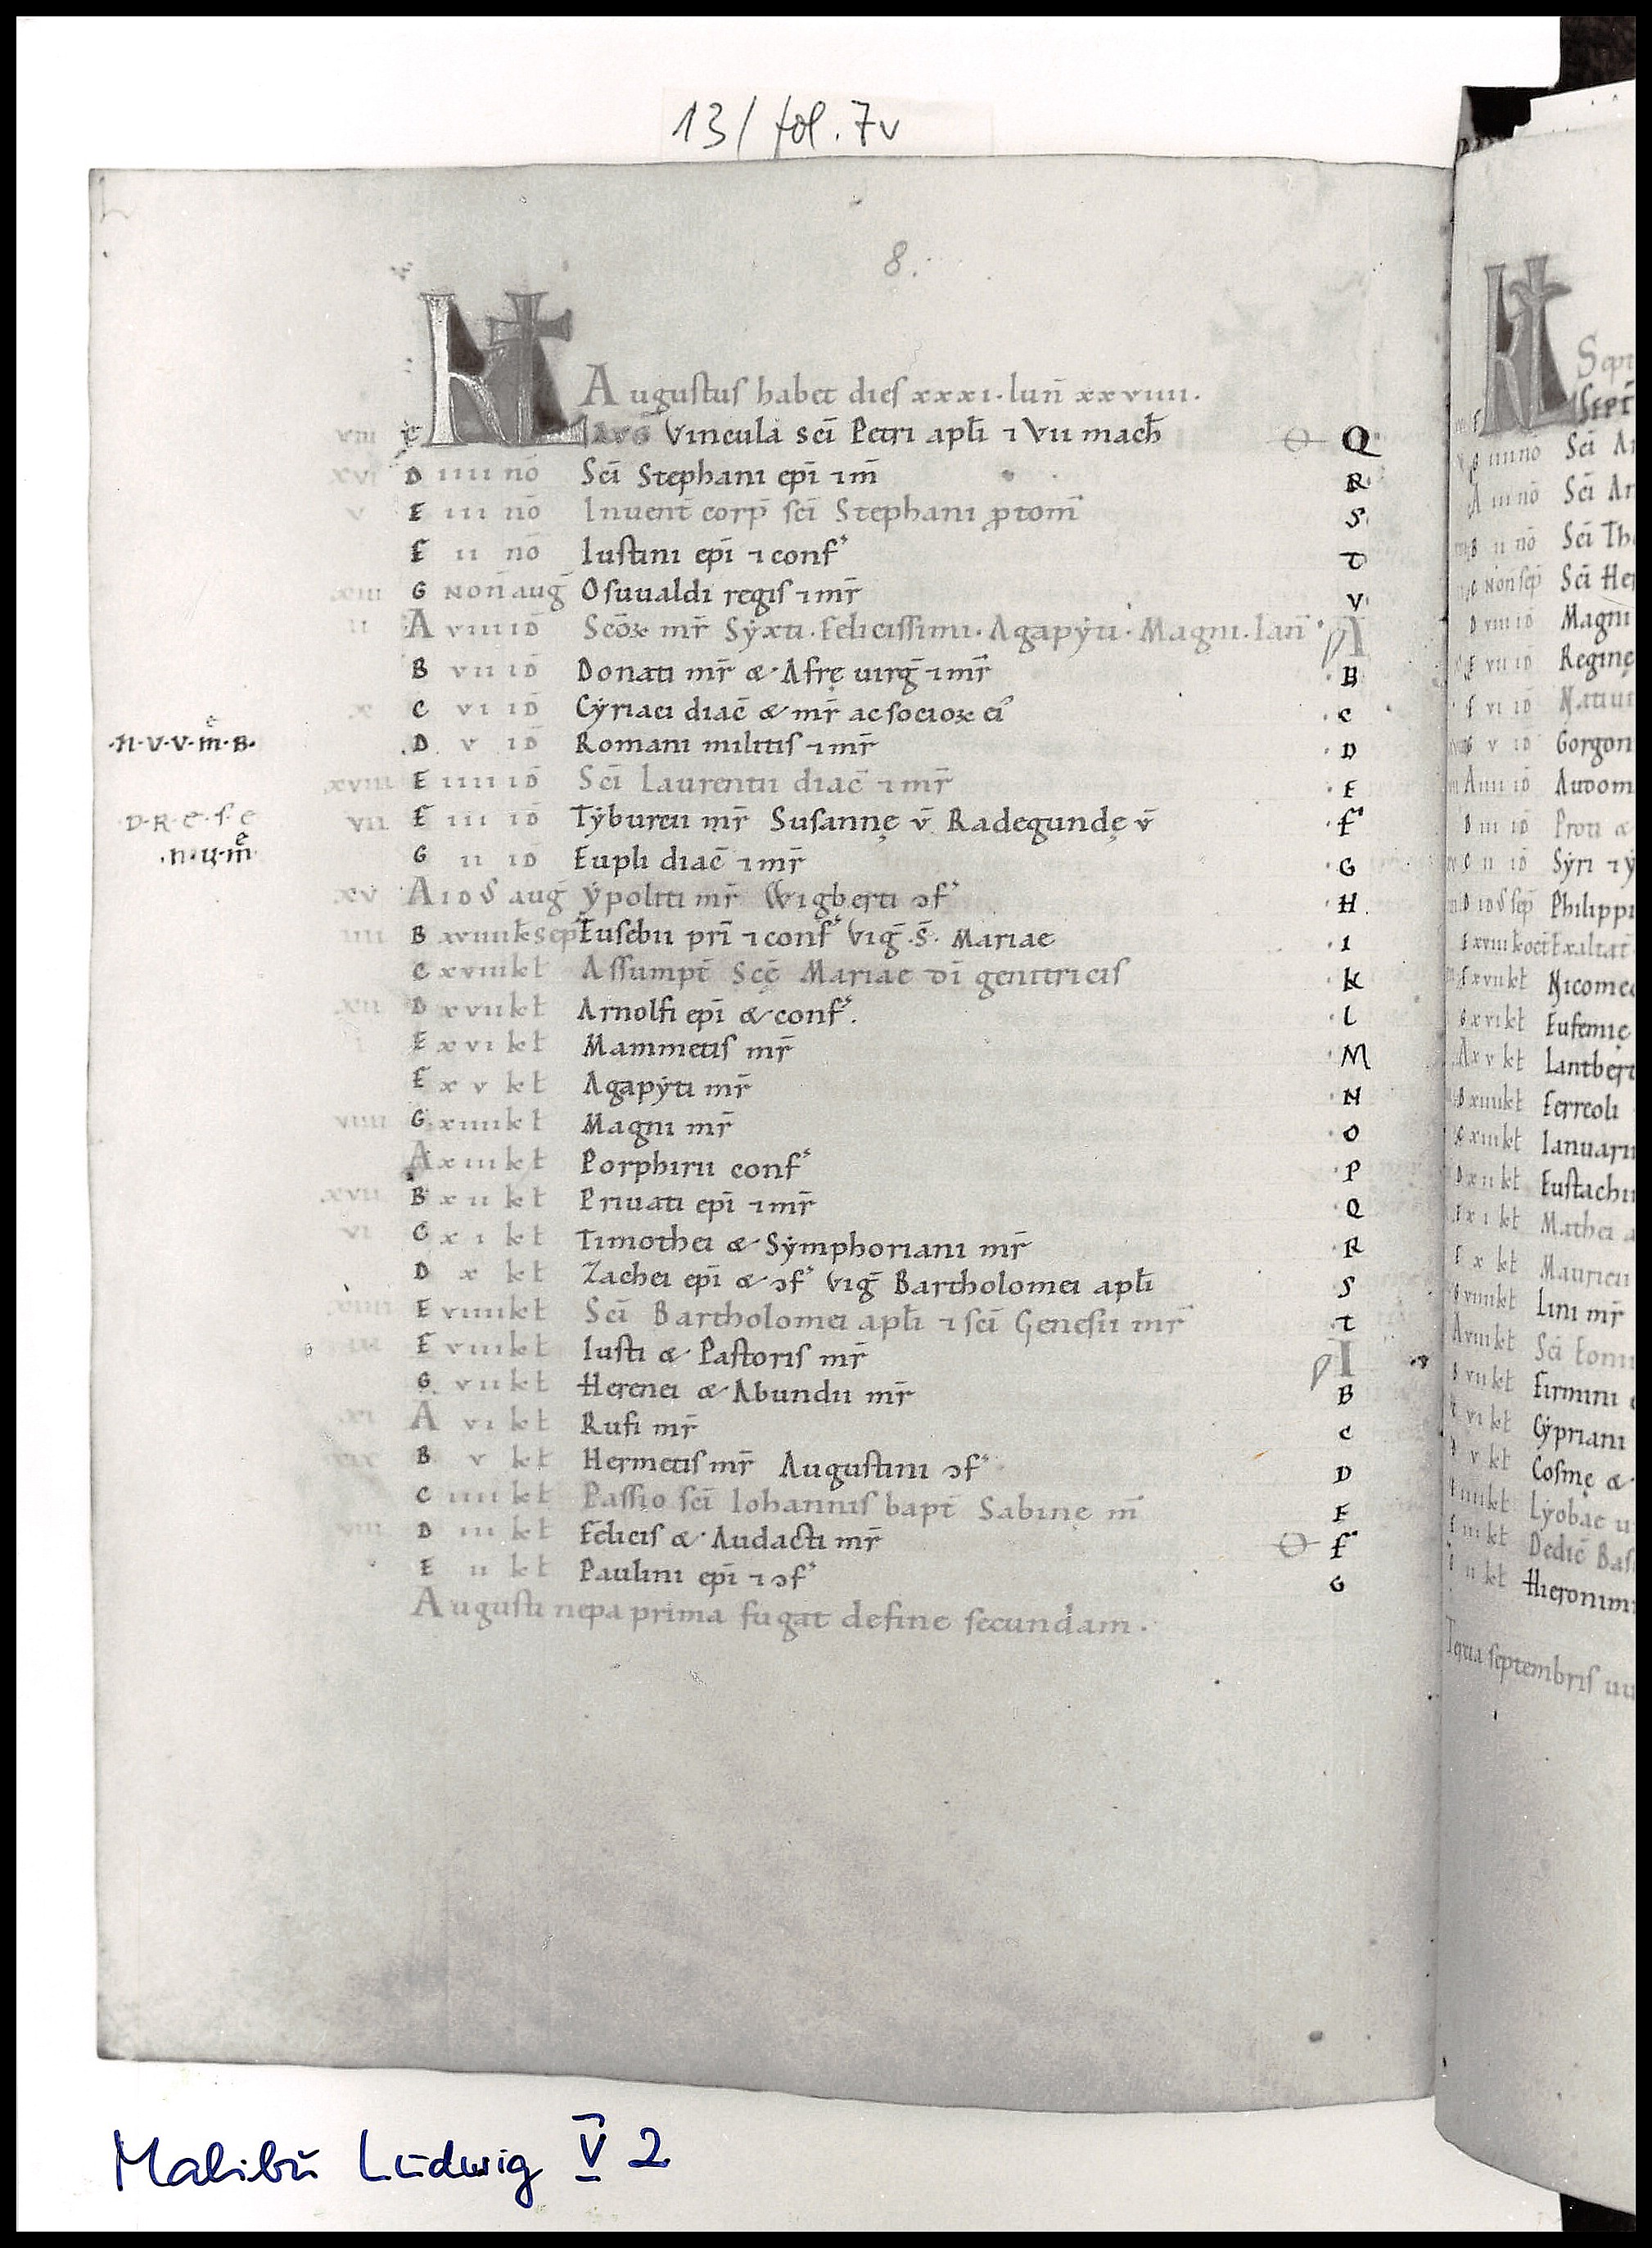 13/ fol. 7v
8.
KL Augustus habet dies xxxi. lun̄ xxviiii.
viii C AVG Vincula sc̄i Petri apl̄i ⁊ Vii mach̄ Q
xvi D iiii nō Sc̄i Stephani ep̄i ⁊ m̄ R
v E iii nō Inuent̄ corp̄ sc̄i Stephani ꝓtom̄ S
F ii nō Iustini ep̄i ⁊ conf̓ T
xiii G Non̄ auḡ Osuualdi regis ⁊ mr̄ V
ii A viii id̄ Scōꝝ mr̄ Syxti. Felicissimi. Agapyti. Magni. Ian̄ A
B vii id̄ Donati mr̄ & Afrę uirḡ ⁊ mr̄ B
x C vi id̄ Cyriaci diac̄ & mr̄ ac socioꝝ ei᾽ C
.N.V.V.m̄.B. D v id̄ Romani militis ⁊ mr̄ D
xviii E iiii id̄ Sc̄i Laurentii diac̄ ⁊ mr̄ E
D.R.E.S.E vii F iii id̄ Tyburtii mr̄ Susannę v̄ Radegundę v̄ F
G ii id̄ Eupli diac̄ ⁊ mr̄ G
xv A idS auḡ ypoliti mr̄ Wigberti ↄf̓ H
iiii B xviiii kł sep̄ Eusebii pr̄i ⁊ conf̓ Viḡ .S̄. Mariae I
C xviii kł Assumpt̄ Sc̄ę Mariae dī genitricis K
xii D xvii kł Arnolfi ep̄i & conf̓. L
i E xvi kł Mammetis mr̄ M
F xv kł Agapyti mr̄ N
viiii G xiiii kł Magni mr̄ O
A xiii kł Porphirii conf̓ P
xvii B xii kł Priuati ep̄i ⁊ mr̄ Q
vi C xi kł Timothei & Symphoriani mr̄ R
D x kł Zachei ep̄i & ↄf̓ Viḡ Bartholomei apl̄i S
xiiii E viiii kł Sc̄i Bartholomei apl̄i ⁊ sc̄i Genesii mr̄ T
iii F viii kł Iusti & Pastoris mr̄
G vii kł Herenei & Abundii mr̄ B
xi A vi kł Rufi mr̄ C
xix B v kł Hermetis mr̄ Augustini ↄf̓ D
C iiii kł Passio sc̄i Iohannis bapt̄ Sabinę m̄ E
viii D iii kł Felicis & Audacti mr̄ F
E ii kł Paulini ep̄i ⁊ ↄf̓ G
Augusti nepa prima fugat define secundam.
KL Sept
Sept
iiii nō Sc̄i
iii nō Sc̄i
ii nō Sc̄i Th
Non sep̄ Sc̄i He
viii id̄ Magni
vii id̄ Reginę
vi id̄ Natiui
v id̄ Gorgon
iiii id̄ Audom
iii id̄ Proti &
ii id̄ Syri ⁊
idS sep̄ Philippi
xviii kł oct̄ Exaltat
xvii kł Nicomed
xvi kł Eufemię
xv kł Lantbert
xiiii kł Ferreoli
xiii kł Ianuarii
xii kł Eustachii
xi kł Mathei a
x kł Mauricii
viiii kł Lini mr̄
viii kł Sc̄i
vii kł Firmini
vi kł Cypriani
v kł Cosmę &
iiii kł Lyobae u
iii kł Dedic̄ Bas
ii kł Hieronimi
Tertia septembris
Malibu Ludwig V 2